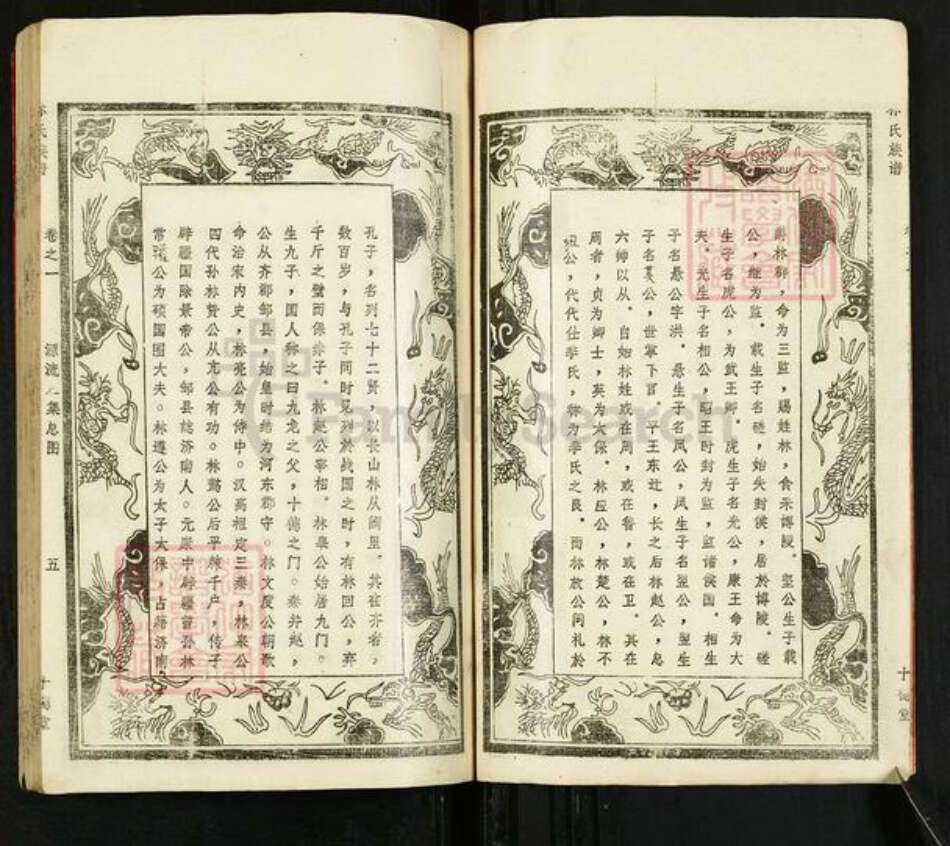 林氏族谱
爵林郡，命为三监，赐姓林，食采博陵。坚公生子载
公，继为监。载生子名磋，始失封侯，居於博陵。磋
生子名虎公，为武王卿。虎生子名光公，康王命为大
夫。光生子名相公，昭王时封为监，监诸侯国。相生
子名愚公字洪。愚生子名凤公，凤生子名翌公，翌生
子名公，世掌下官。平王东迁，长之后林赵公，息
六师以从。自始林姓或在周，或在晋，或在卫。其在
周者，贞为卿士，英为太保。林应公，林楚公，林不
狃公，代代仕季氏，林为季氏之良。而林放公问礼於
孔子，名列七十二贤，以长山林从阙里。其在齐者，
数百岁，与孔子同时见列於战国之时，有林回公，弃
千斤之璧而保赤子。林赵公宰相。林皋公始居九门。
生九子，国人称之曰九龙之父，十德之门。秦并赵，
公从齐郡邹县，始皇时结为河东郡守。林文度公朝歌
命治宋内史，林亮公为侍中。汉高祖定三秦，林泉公
四代孙林贽公从亢公有功。林骜公后平棘千户，传子
辟疆国除景帝公，邹县徙济南人。元康中辟疆曾孙林
常公为硕国大夫。林遵公为太子太保，占籍济南
卷之一
源流
集总图
五